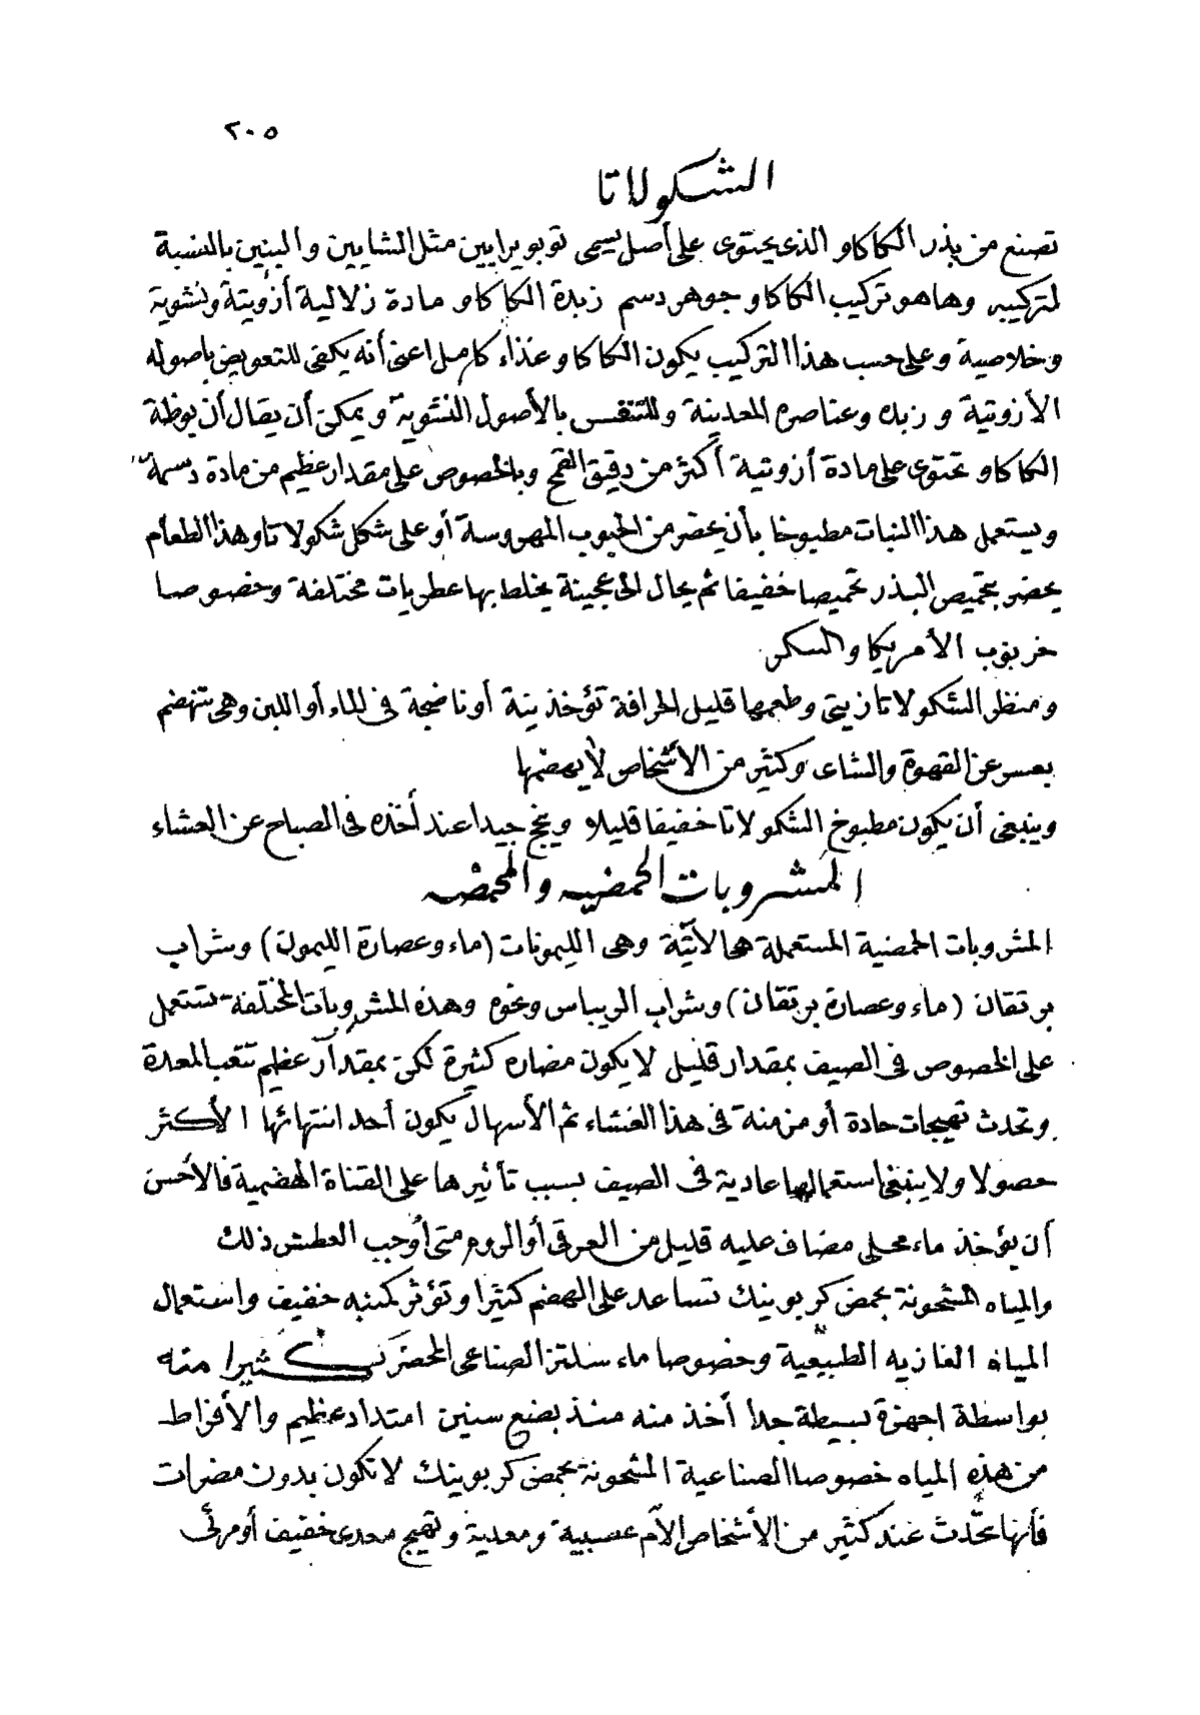 ٢٠٥
الشكولاتا
تصنع من بذر الكاكاو الذى يحتوى على أصل يسمى توبو يرايين مثل الشايين والبنين بالنسبة
لتركيبه وها هو تركيب الكاكاو جوهر دسم زبدة الكاكاو مادة زلالية أزوتية ونشوية
وخلاصية وعلى حسب هذا التركيب يكون الكاكاو غذاء كامل اعنى أنه يكفى للتعويض بأصوله
الأزوتية و زبده وعناصره المعدنية وللتنفس بالأصول النشوية ويمكن أن يقال أن بوظة
الكاكاو تحتوى على مادة أزوتية أكثر من دقيق القمح وبالخصوص على مقدار عظيم من مادة دسمة
ويستعمل هذا النبات مطبوخا بأن يحضر من الحبوب المهروسة أو على شكل شكولاتا وهذا الطعام
يحضر بتحميص البذر تحميصا خفيفا ثم يحال الى عجينة يخلط بها عطريات مختلفة وخصوصا
خربوب الأمريكا والسكر
ومنظر الشكولاتا زيتى وطعمها قليل الحرافة تؤخذ نية أو ناضجة فى الماء أو اللبن وهى تنهضم
بعسر عن القهوة والشاى وكثير من الأشخاص لا يهضمها
وينبغى أن يكون مطبوخ الشكولاتا خفيفا قليلا وينجح جيدا عند أخذه فى الصباح عن العشاء
المشروبات الحمضيه والمحمضه
المشروبات الحمضية المستعملة هى الآتية وهى الليمونات (ماء وعصارة الليمون) وشراب
برتقان (ماء وعصارة برتقان) وشراب الريباس ونحوه وهذه المشروبات المختلفة تستعمل
على الخصوص فى الصيف بمقدار قليل لا يكون مضاره كثيرة لكن بمقدار عظيم تتعب المعدة
وتحدث تهيجات حادة أو مزمنة فى هذا الغشاء ثم الأسهال يكون أحد انتهائها الأكثر
حصولا ولا ينبغى استعمالها عادية فى الصيف بسبب تأثيرها على القناة الهضمية فالأحسن
أن يؤخذ ماء محلى مضاف عليه قليل من العرقى أو الروم متى أوجب العطش ذلك
والمياه المشحونة بحمض كربونيك تساعد على الهضم كثيرا وتؤثر كمنبه خفيف واستعمال
المياه الغازيه الطبيعية وخصوصا ماء سلتز الصناعى المحضر كثيرا منه
بواسطة اجهزة بسيطة جدا أخذ منه منذ بضع سنين امتداد عظيم والأفراط
من هذه المياه خصوصا الصناعية المشحونة بحمض كربونيك لا تكون بدون مضرات
فأنها تحدث عند كثير من الأشخاص الآم عصبية ومعدية وتهيج معدى خفيف أو مرئى